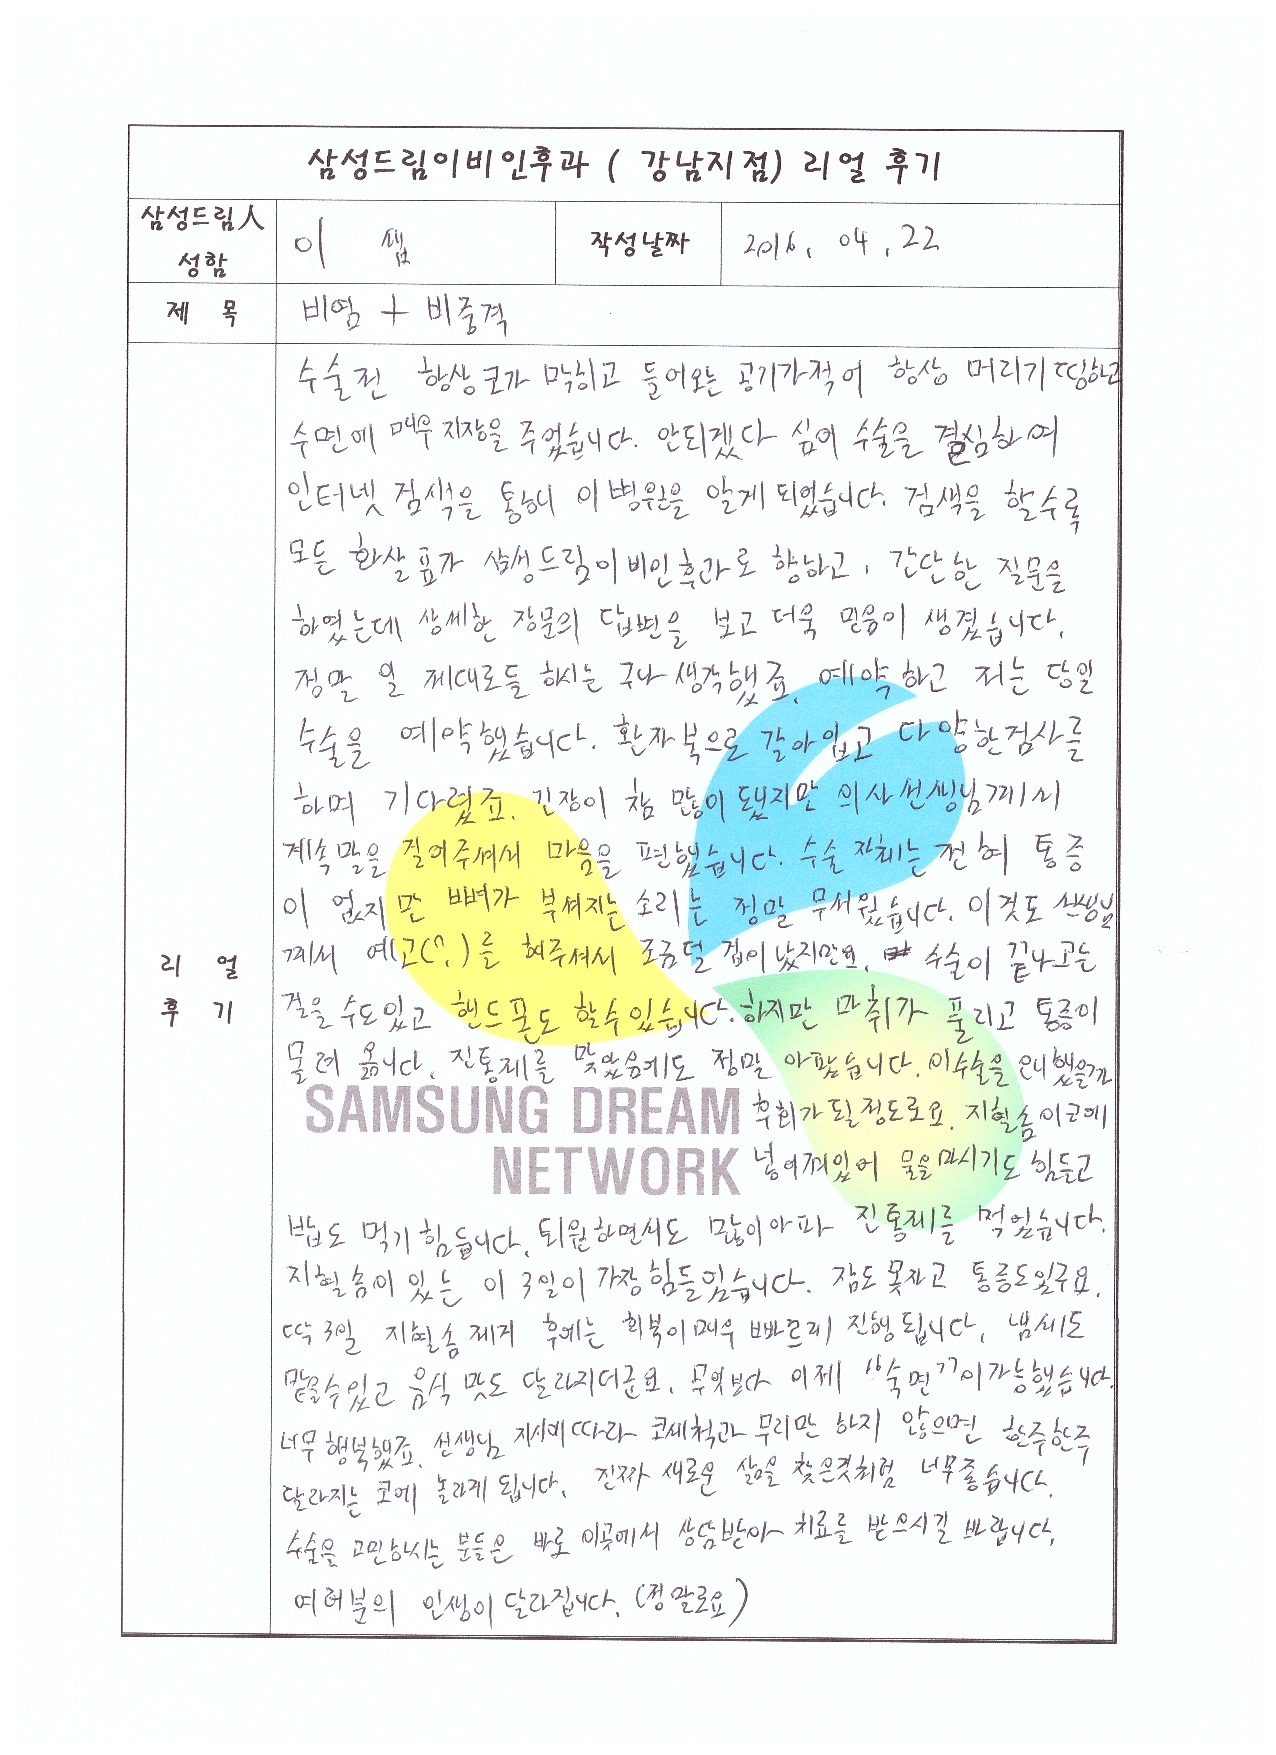 삼성드림이비인후과 ( 강남지점) 리얼 후기
삼성드림人 성함
이 샘
작성날짜
2016. 04. 22
제 목
비염 + 비중격
리 얼 후 기
수술전 항상 코가 막히고 들어오는 공기가적어 항상 머리가 띵하고
수면에 매우 지장을 주었습니다. 안되겠다 싶어 수술을 결심하여
인터넷 검색을 통해 이 병원을 알게 되었습니다. 검색을 할수록
모든 화살표가 삼성드림이비인후과로 향하고, 간단한 질문을
하였는데 상세한 장문의 답변을 보고 더욱 믿음이 생겼습니다.
정말 일 제대로들 하시는 구나 생각했죠. 예약하고 저는 당일
수술을 예약했습니다. 환자복으로 갈아입고 다양한검사를
하며 기다렸죠. 긴장이 참 많이 됐지만 의사선생님께서
계속말을 걸어주셔서 마음을 편했습니다. 수술 자체는 전혀 통증
이 없지만 뼈가 부셔지는 소리는 정말 무서웠습니다. 이것도 선생님
께서 예고(?)를 해주셔서 조금덜 겁이났지만요. 수술이 끝나고는
걸을 수도있고 핸드폰도 할수있습니다. 하지만 마취가 풀리고 통증이
몰려 옵니다. 진통제를 맞았음에도 정말 아팠습니다. 이수술을 왜했을까
SAMSUNG DREAM 후회가 될정도로요. 지혈솜이 코에
NETWORK 넣어져있어 물을마시기도 힘들고
밥도 먹기힘듭니다. 퇴원하면서도 많이아파 진통제를 먹었습니다.
지혈솜이 있는 이 3일이 가장힘들었습니다. 잠도못자고 통증도있구요.
딱 3일 지혈솜제거 후에는 회복이매우 빠르게 진행됩니다. 냄새도
맡을수있고 음식 맛도 달라지더군요. 무엇보다 이제 "숙면"이가능했습니다.
너무행복했죠. 선생님 지시에따라 코세척과 무리만 하지 않으면 한주한주
달라지는 코에 놀라게 됩니다. 진짜 새로운 삶을 찾은것처럼 너무좋습니다.
수술을 고민하시는 분들은 바로 이곳에서 상담받아 치료를 받으시길 바랍니다.
여러분의 인생이 달라집니다. (정말로요)